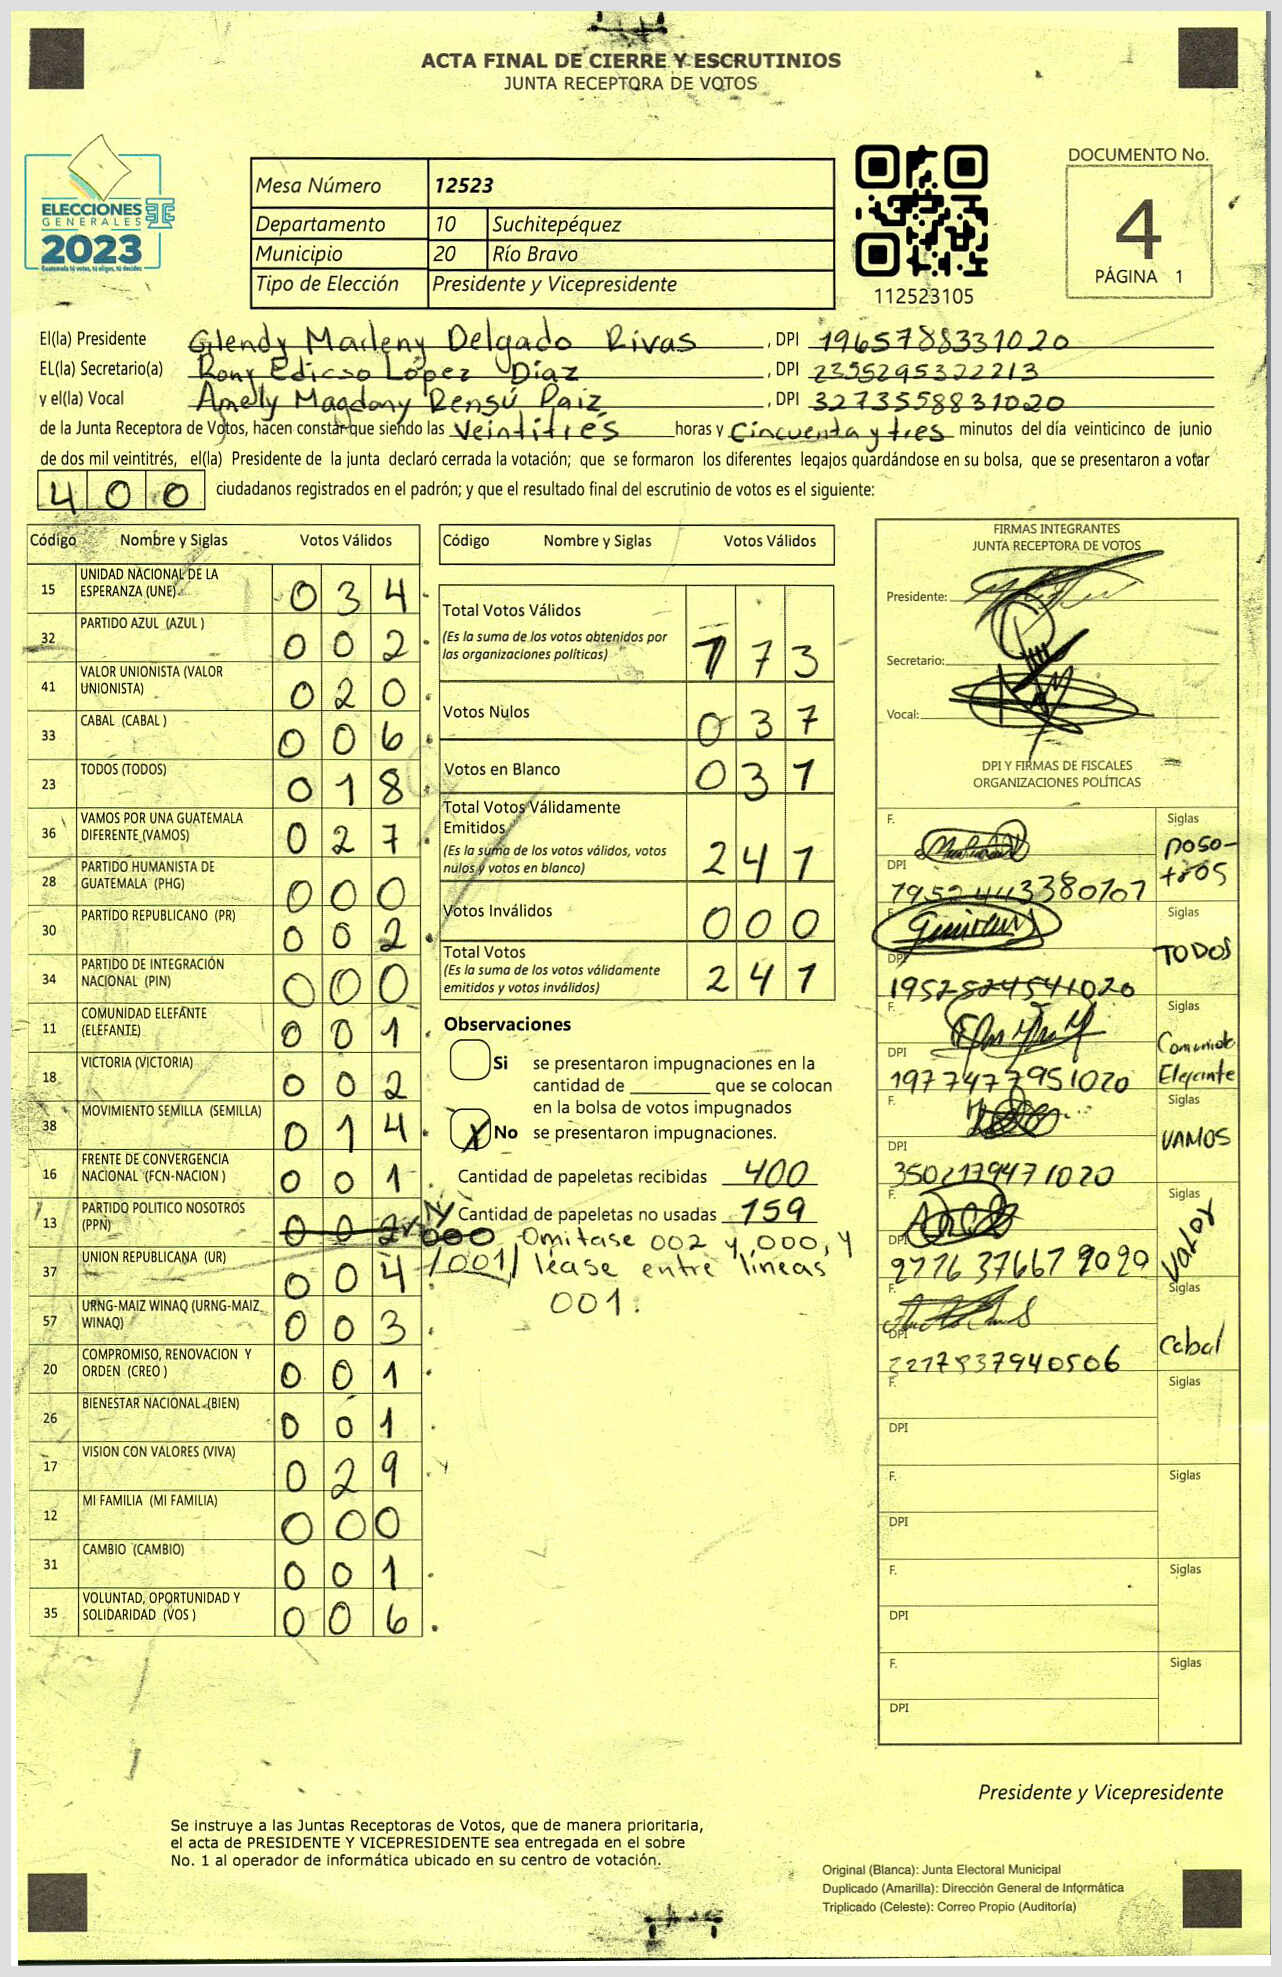 ACTA FINAL DE CIERRE Y ESCRUTINIOS
JUNTA RECEPTORA DE VOTOS
ELECCIONES
GENERALES
2023
Guatemala tú votas, tú eliges, tú decides
Mesa Número 12523
Departamento 10 Suchitepéquez
Municipio 20 Río Bravo
Tipo de Elección Presidente y Vicepresidente
112523105
DOCUMENTO No.
4
PÁGINA 1
El(la) Presidente Glendy Marleny Delgado Rivas , DPI 1965788331020
EL(la) Secretario(a) Rony Edicso López Díaz , DPI 2355295322213
y el(la) Vocal Amelly Magdony Rensú Paiz , DPI 3273558831020
de la Junta Receptora de Votos, hacen constar que siendo las Veintitrés horas y Cincuenta y tres minutos del día veinticinco de junio
de dos mil veintitrés, el(la) Presidente de la junta declaró cerrada la votación; que se formaron los diferentes legajos guardándose en su bolsa, que se presentaron a votar
400 ciudadanos registrados en el padrón; y que el resultado final del escrutinio de votos es el siguiente:
Código Nombre y Siglas Votos Válidos
15 UNIDAD NACIONAL DE LA ESPERANZA (UNE) 034
32 PARTIDO AZUL (AZUL ) 002
41 VALOR UNIONISTA (VALOR UNIONISTA) 020
33 CABAL (CABAL ) 006
23 TODOS (TODOS) 018
36 VAMOS POR UNA GUATEMALA DIFERENTE (VAMOS) 027
28 PARTIDO HUMANISTA DE GUATEMALA (PHG) 000
30 PARTIDO REPUBLICANO (PR) 002
34 PARTIDO DE INTEGRACIÓN NACIONAL (PIN) 000
11 COMUNIDAD ELEFANTE (ELEFANTE) 001
18 VICTORIA (VICTORIA) 002
38 MOVIMIENTO SEMILLA (SEMILLA) 014
16 FRENTE DE CONVERGENCIA NACIONAL (FCN-NACION ) 001
13 PARTIDO POLITICO NOSOTROS (PPN) 002 000
37 UNION REPUBLICANA (UR) 004 /001/
57 URNG-MAIZ WINAQ (URNG-MAIZ WINAQ) 003
20 COMPROMISO, RENOVACION Y ORDEN (CREO ) 001
26 BIENESTAR NACIONAL (BIEN) 001
17 VISION CON VALORES (VIVA) 029
12 MI FAMILIA (MI FAMILIA) 000
31 CAMBIO (CAMBIO) 001
35 VOLUNTAD, OPORTUNIDAD Y SOLIDARIDAD (VOS ) 006
Código Nombre y Siglas Votos Válidos
Total Votos Válidos 173
(Es la suma de los votos obtenidos por
las organizaciones políticas)
Votos Nulos 037
Votos en Blanco 031
Total Votos Válidamente
Emitidos 241
(Es la suma de los votos válidos, votos
nulos y votos en blanco)
Votos Inválidos 000
Total Votos 241
(Es la suma de los votos válidamente
emitidos y votos inválidos)
Observaciones
Si se presentaron impugnaciones en la
cantidad de ________ que se colocan
en la bolsa de votos impugnados
X No se presentaron impugnaciones.
Cantidad de papeletas recibidas 400
Cantidad de papeletas no usadas 159
Omitase 002 y 000, y
léase entre líneas
001.
FIRMAS INTEGRANTES
JUNTA RECEPTORA DE VOTOS
Presidente:
Secretario:
Vocal:
DPI Y FIRMAS DE FISCALES
ORGANIZACIONES POLÍTICAS
F. Siglas noso-
tros
DPI 1952443380707
F. Siglas TODOS
DPI 1952824541020
F. Siglas Comunidad
Elefante
DPI 1977477951020
F. Siglas VAMOS
DPI 3502179471020
F. Siglas Valor
DPI
F. Siglas Cabal
DPI 2217837940506
F. Siglas
DPI
F. Siglas
DPI
F. Siglas
DPI
F. Siglas
DPI
Presidente y Vicepresidente
Se instruye a las Juntas Receptoras de Votos, que de manera prioritaria,
el acta de PRESIDENTE Y VICEPRESIDENTE sea entregada en el sobre
No. 1 al operador de informática ubicado en su centro de votación.
Original (Blanca): Junta Electoral Municipal
Duplicado (Amarilla): Dirección General de Informática
Triplicado (Celeste): Correo Propio (Auditoría)